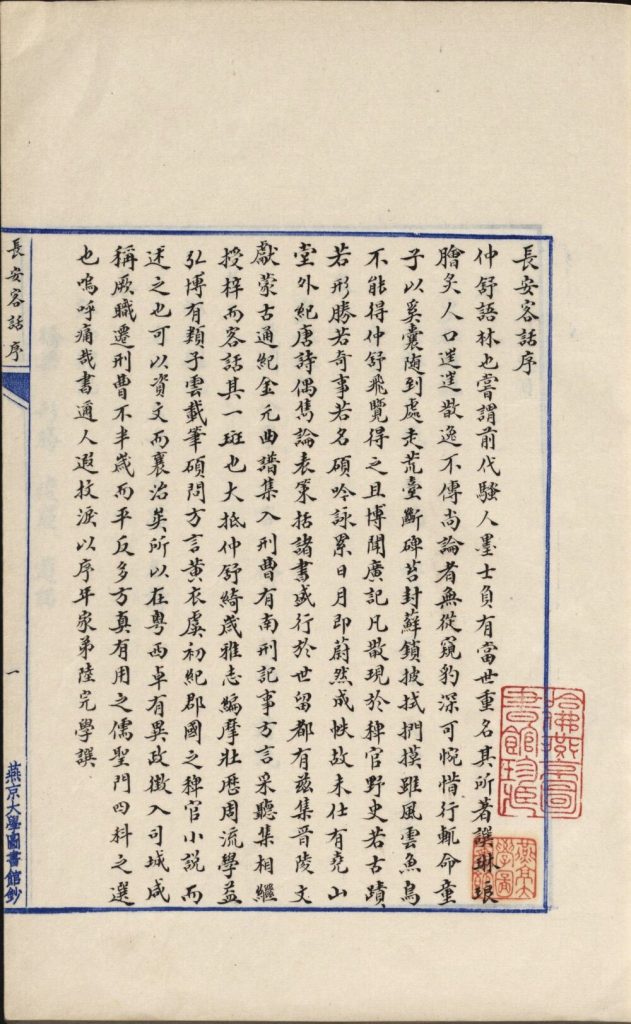 長安客話序
仲舒語林也嘗謂前代騷人墨士負有當世重名其所著譔琳琅
膾炙人口迷迷散逸不傳尚論者無從窺豹深可惋惜行輒命童
子以奚囊隨到處走荒臺斷碑苔封蘚鎖披拭捫摸雖風雲魚鳥
不能得仲舒飛覽得之且博聞廣記凡散現於稗官野史若古蹟
若形勝若奇事若名碩吟詠累日月即蔚然成帙故未仕有堯山
堂外紀唐詩偶雋論表策括諸書盛行於世留都有茲集晉陵文
獻蒙古通紀金元曲譜集入刑曹有南刑記事方言采聽集相繼
授梓而客話其一斑也大抵仲舒綺歲雅志編摩壯歷周流學益
弘博有類子雲載筆碩問方言黃衣虞初紀郡國之稗官小說而
述之也可以資文而襄治矣所以在粵西卓有異政徵入司城咸
稱厥職遷刑曹不半歲而平反多方真有用之儒聖門四科之選
也嗚呼痛哉書邇人遐抆淚以序年家弟陸完學譔
長安客話序
一
燕京大學圖書館鈔
哈佛燕京圖書館珍藏